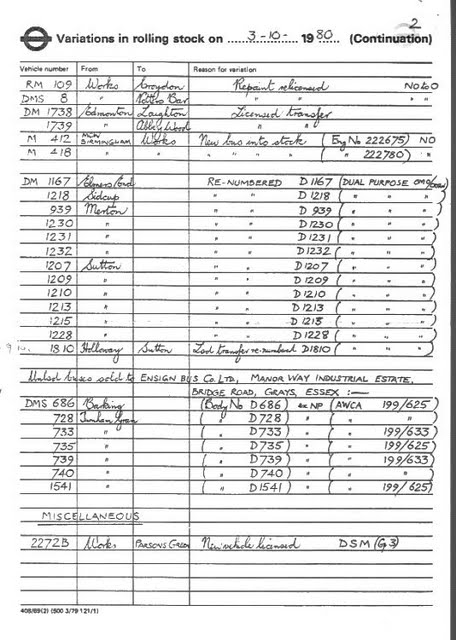 2
Variations in rolling stock on 3-10- 1980 (Continuation)
Vehicle number From To Reason for variation
RM 109 Works Croydon Repaint relicensed NOLOO
DMS 8 " Potters Bar " " " "
DM 1738 Edmonton Loughton Licensed transfer
1739 " Abbey Wood " "
M 412 MCW BIRMINGHAM Works New bus into stock (Eng No 222675) NO
M 418 " " " " " " ( " 222780) "
DM 1167 Elmers End RE-NUMBERED D1167 (DUAL PURPOSE OMO/
1218 Sidcup " " D1218 ( " " "
939 Merton " " D 939 ( " " " )
1230 " " " D1230 ( " " " )
1231 " " " D1231 ( " " " )
1232 " " " D1232 ( " " " )
1207 Sutton " " D1207 ( " " " )
1209 " " " D1209 ( " " " )
1210 " " " D1210 ( " " " )
1213 " " " D1213 ( " " " )
1215 " " " D1215 ( " " " )
1228 " " " D1228 ( " " " )
1810 Holloway Sutton Lsd transfer re-numbered D1810 ( " " " )
Unlsd buses sold to ENSIGN BUS Co. LTD, MANOR WAY INDUSTRIAL ESTATE,
BRIDGE ROAD, GRAYS, ESSEX :—
DMS 686 Barking (Body No D686) ex NP (AWCA 199/625)
728 Turnham Green ( " D728 ) " ( "
733 " ( " D733 ) " ( " 199/633)
735 " ( " D735 ) " ( " 199/625)
739 " ( " D739 ) " ( " 199/633)
740 " ( " D740 ) " (
1541 " ( " D1541 ) " ( " 199/625)
MISCELLANEOUS
2272B Works PARSONS GREEN New vehicle licensed DSM (G3)
408/69(2) (500 3/79 121/1)